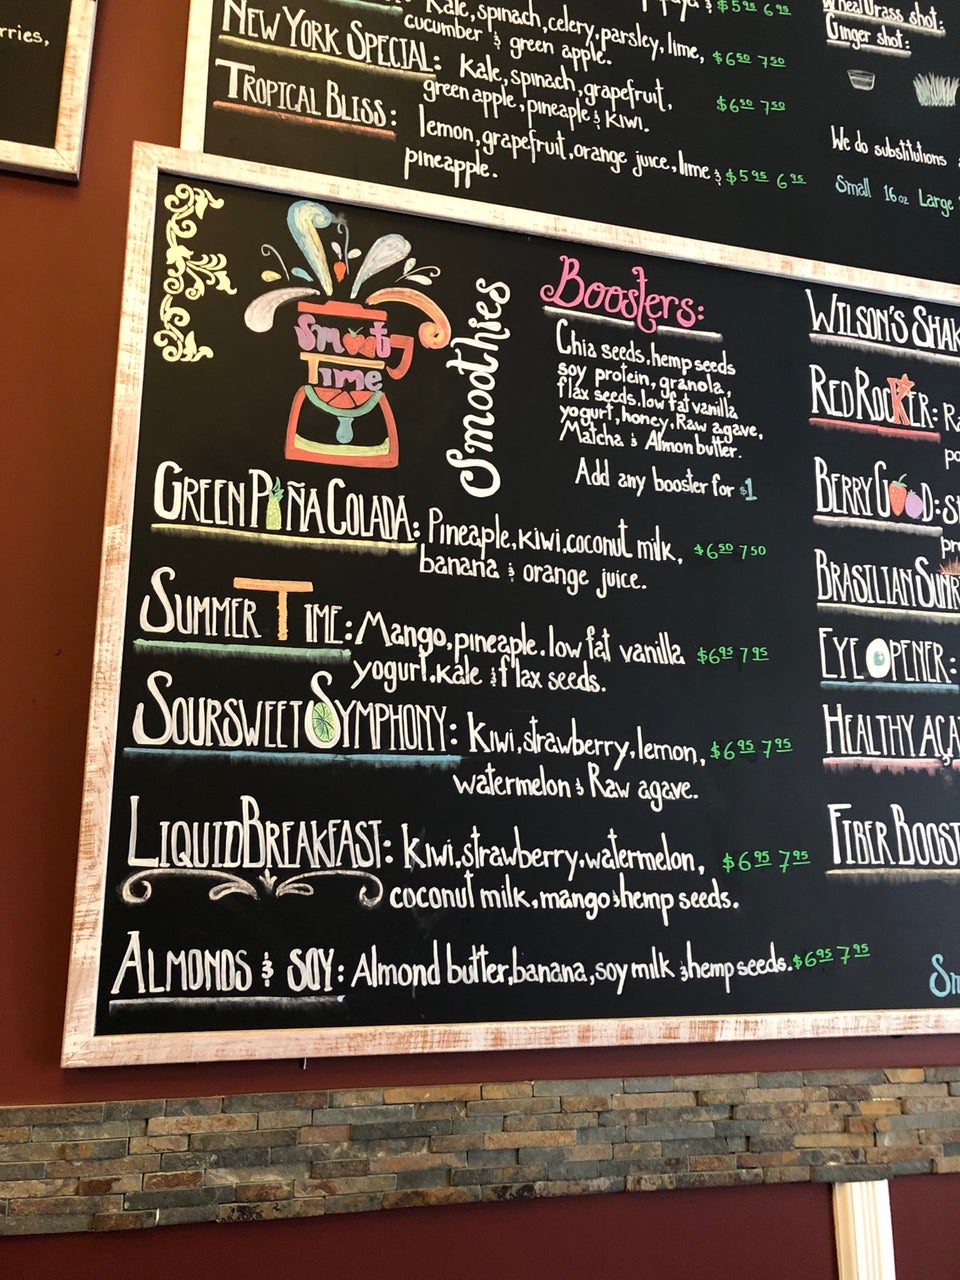 rries,
Kale, spinach, celery, parsley, lime, $5.95 6.95
cucumber & green apple. $6.50 7.50
NEW YORK SPECIAL: Kale, spinach, grapefruit,
green apple, pineapple & kiwi. $6.50 7.50
TROPICAL BLISS: lemon, grapefruit, orange juice, lime & $5.95 6.95
pineapple.
Wheat Grass shot:
Ginger shot:
We do substitutions
Small 16oz Large
Smooth
Time
Smoothies
Boosters:
Chia seeds, hemp seeds
soy protein, granola,
flax seeds, low fat vanilla
yogurt, honey, Raw agave,
Matcha & Almon butter.
Add any booster for $1
GREEN PIÑA COLADA: Pineapple, kiwi, coconut milk, $6.50 7.50
banana & orange juice.
SUMMER TIME: Mango, pineapple, low fat vanilla $6.95 7.95
yogurt, kale & flax seeds.
SOURSWEET SYMPHONY: kiwi, strawberry, lemon, $6.95 7.95
watermelon & Raw agave.
LIQUID BREAKFAST: kiwi, strawberry, watermelon, $6.95 7.95
coconut milk, mango & hemp seeds.
ALMONDS & SOY: Almond butter, banana, soy milk & hemp seeds. $6.95 7.95
WILSON'S SHAK
RED ROCKER: Ra
po
BERRY GOOD: St
pro
BRASILIAN SUNR
EYE OPENER:
HEALTHY AÇA
FIBER BOOST
Sm